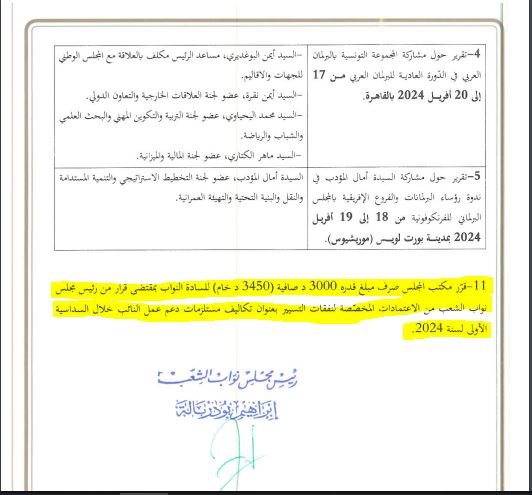 4-تقرير حول مشاركة المجموعة التونسية بالبرلمان
العربي في الدورة العادية للبرلمان العربي من 17
إلى 20 أفريل 2024 بالقاهرة.
-السيد أيمن البوغديري، مساعد الرئيس مكلف بالعلاقة مع المجلس الوطني
للجهات والاقاليم.
-السيد أيمن نقرة، عضو لجنة العلاقات الخارجية والتعاون الدولي.
-السيد محمد اليحياوي، عضو لجنة التربية والتكوين المهني والبحث العلمي
والشباب والرياضة.
-السيد ماهر الكتاري، عضو لجنة المالية والميزانية.
5-تقرير حول مشاركة السيدة أمال المؤدب في
ندوة رؤساء البرلمانات والفروع الإفريقية بالمجلس
البرلماني للفرنكوفونية من 18 إلى 19 أفريل
2024 بمدينة بورت لويس (موريشيوس).
السيدة أمال المؤدب، عضو لجنة التخطيط الاستراتيجي والتنمية المستدامة
والنقل والبنية التحتية والتهيئة العمرانية.
11-قرّر مكتب المجلس صرف مبلغ قدره 3000 د صافية (3450 د خام) للسادة النواب بمقتضى قرار من رئيس مجلس
نواب الشعب من الاعتمادات المخصّصة لنفقات التسيير بعنوان تكاليف مستلزمات دعم عمل النائب خلال السداسية
الأولى لسنة 2024.
رئيس مجلس نواب الشعب
إبراهيم بودربالة